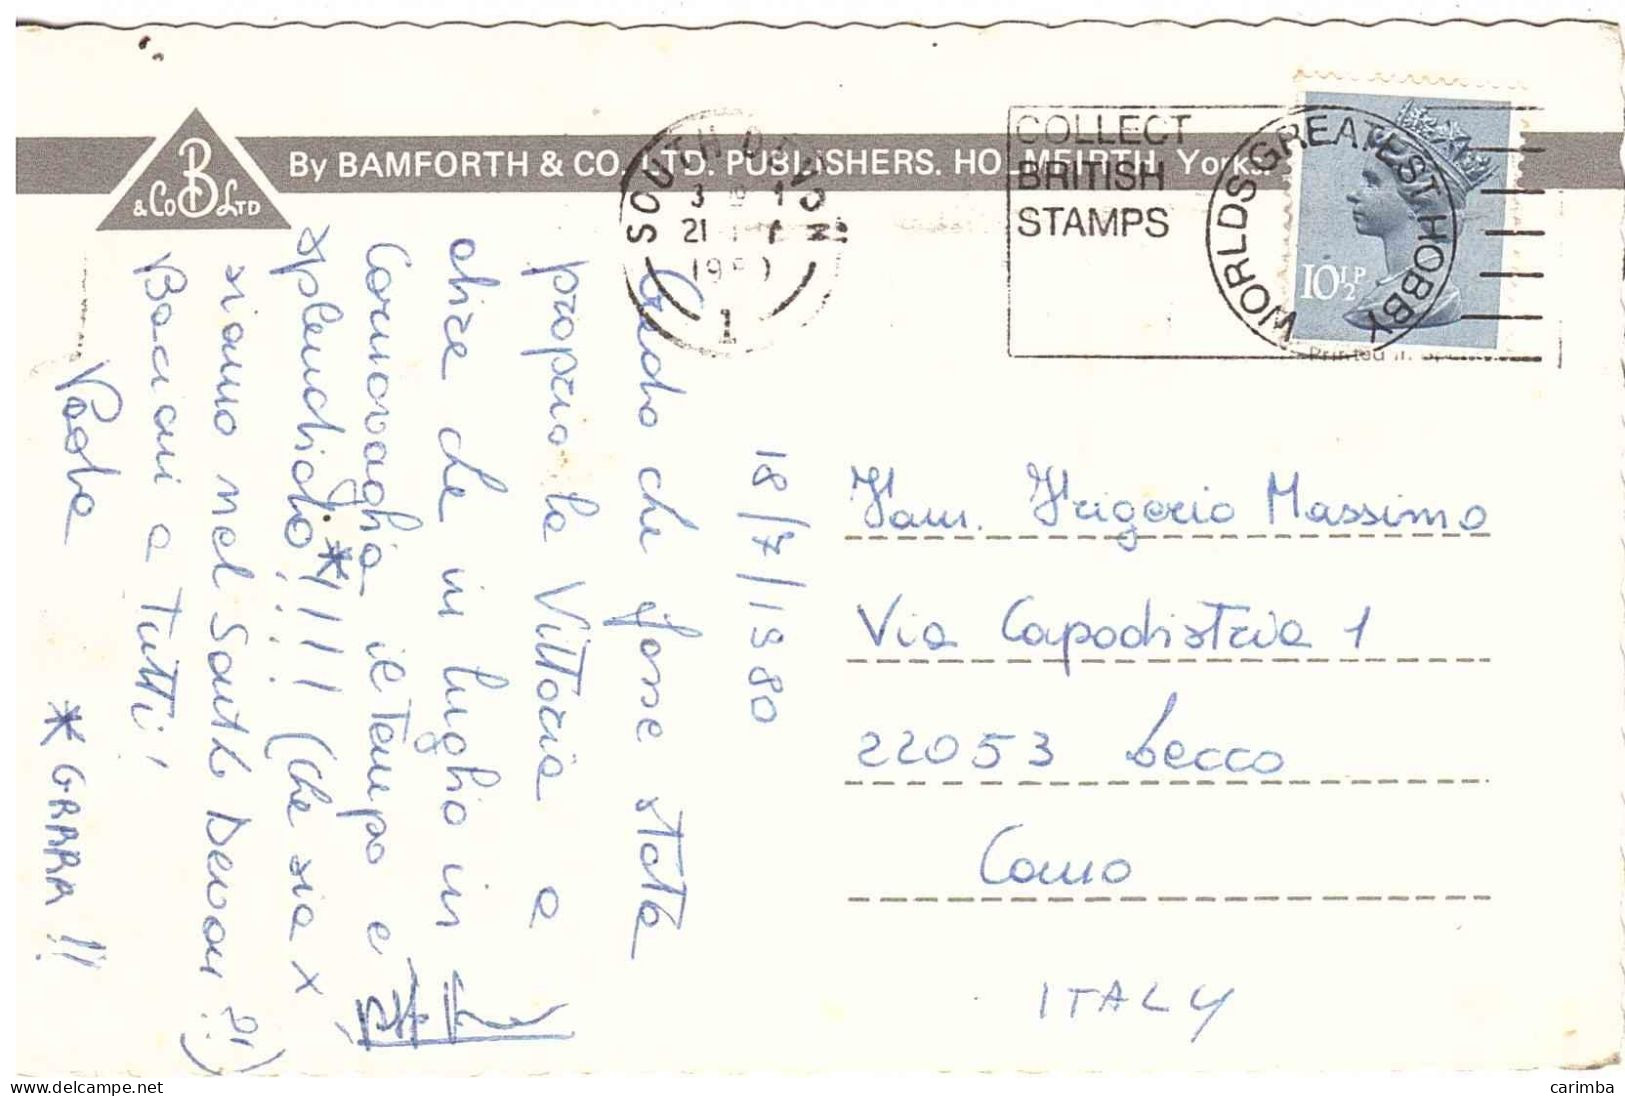 B
& Co LTD
By BAMFORTH & CO. LTD. PUBLISHERS. HOLMFIRTH, Yorks.
SOUTH DEVON
21
1980
1
COLLECT
BRITISH
STAMPS
WORLDS GREATEST HOBBY
10½P
Printed in
18/7/1980
Credo che fosse stata
proprio la Vittoria a
dire che in luglio in
Cornovaglia il tempo è
splendido!*!!!! (che sia x
siamo nel South Devon ?!)
Bacioni a tutti!
Paola
* GRRRR !!
Fam. Frigerio Massimo
Via Capodistria 1
22053 Lecco
Como
ITALY
carimba